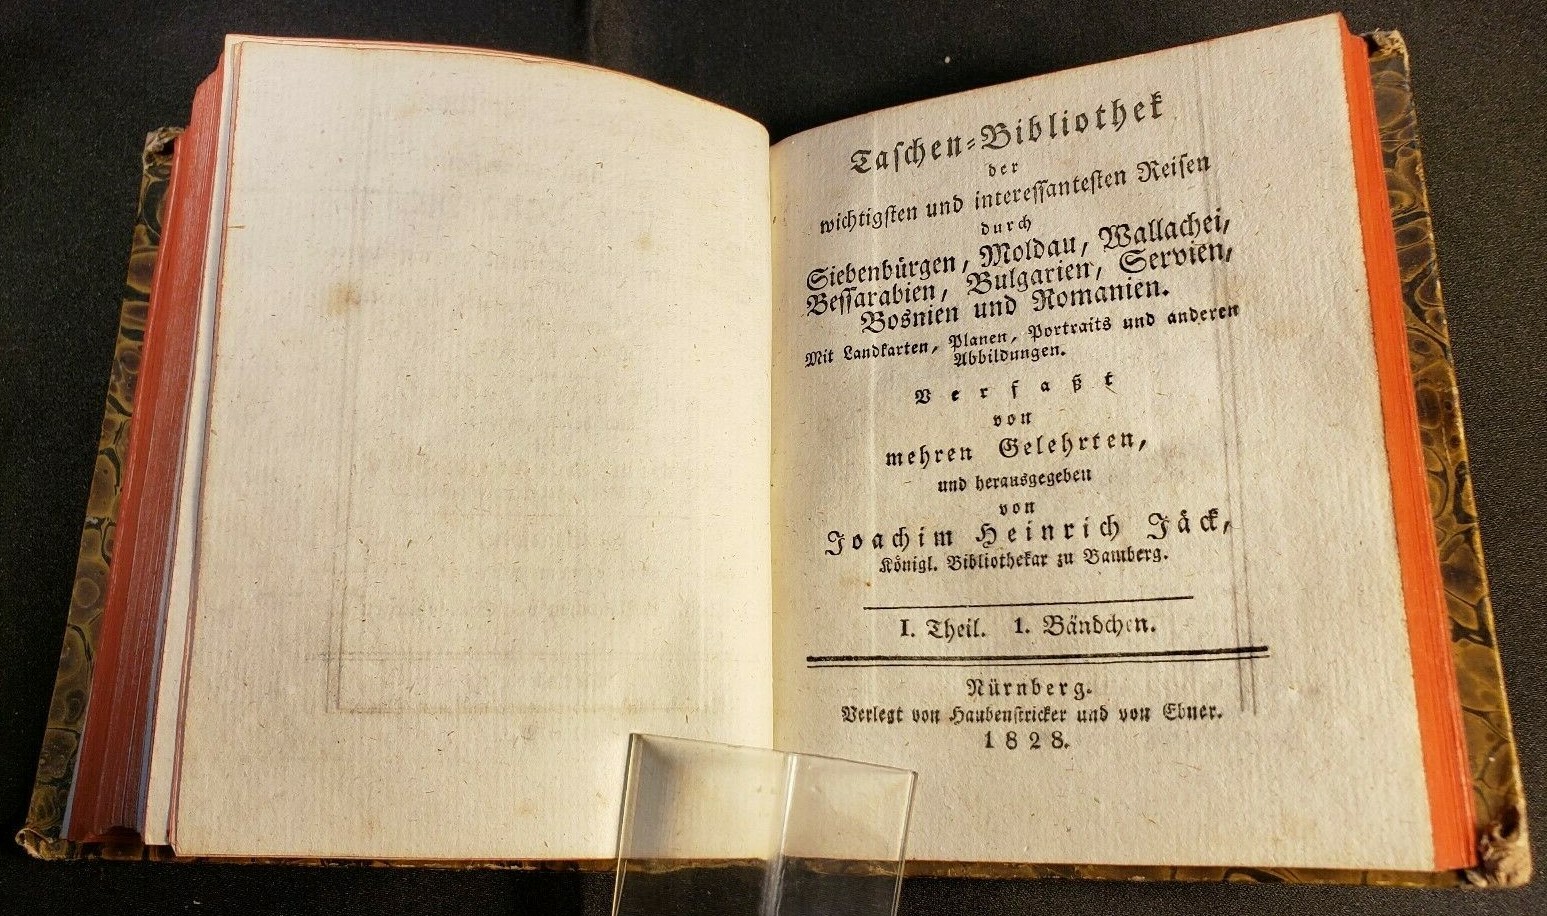 Taſchen-Bibliothek
der
wichtigſten und intereſſanteſten Reiſen
durch
Siebenbürgen, Moldau, Wallachei,
Beſſarabien, Bulgarien, Servien,
Bosnien und Romanien.
Mit Landkarten, Planen, Portraits und anderen
Abbildungen.
Verfaßt
von
mehren Gelehrten,
und herausgegeben
von
Joachim Heinrich Jäck,
Königl. Bibliothekar zu Bamberg.
I. Theil. 1. Bändchen.
Nürnberg.
Verlegt von Haubenſtricker und von Ebner.
1828.